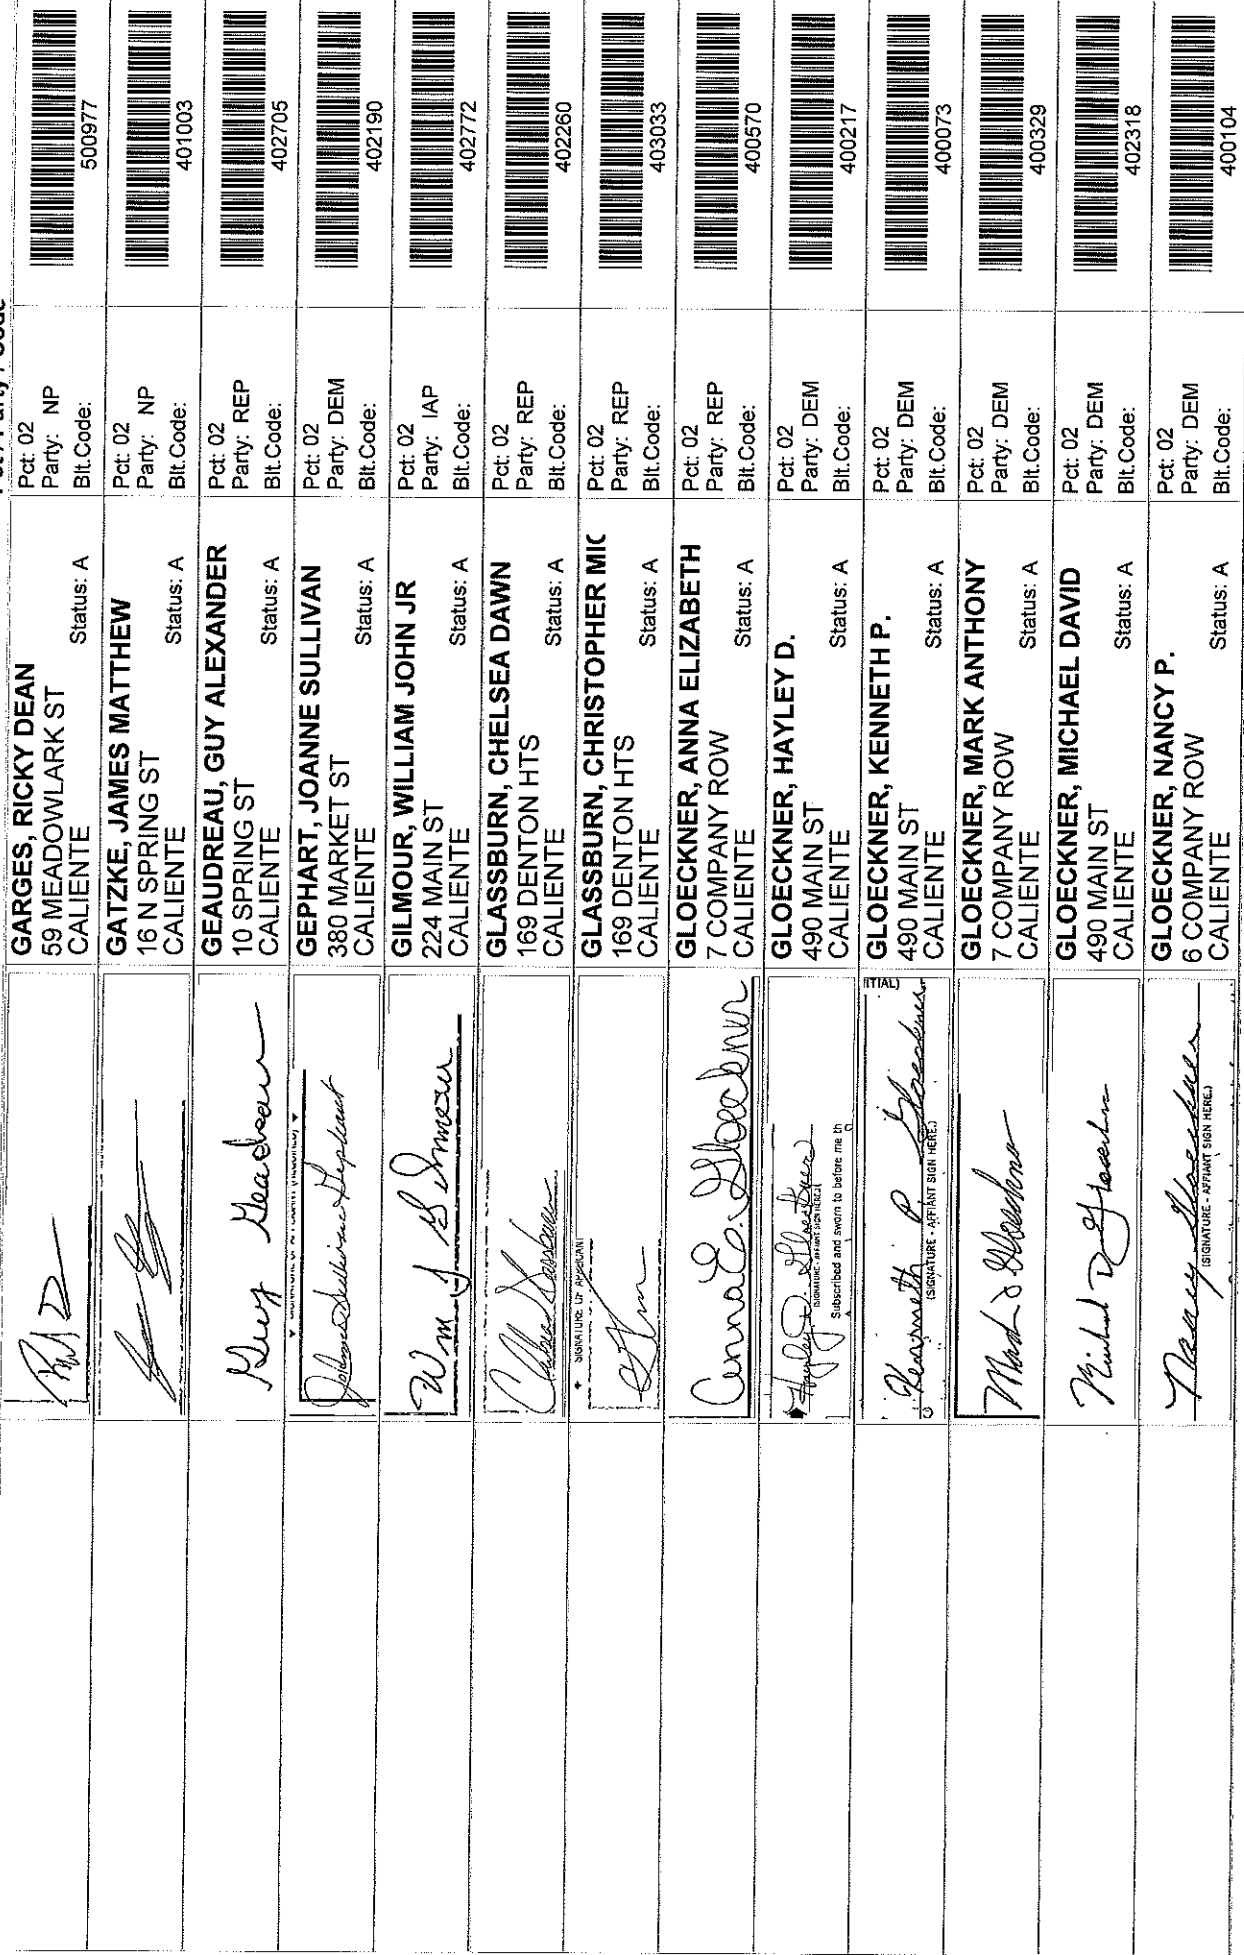 GARGES, RICKY DEAN
59 MEADOWLARK ST
CALIENTE
Status: A
Pct: 02
Party: NP
Blt.Code:
500977
GATZKE, JAMES MATTHEW
16 N SPRING ST
CALIENTE
Status: A
Pct: 02
Party: NP
Blt.Code:
401003
Guy Geaudreau
GEAUDREAU, GUY ALEXANDER
10 SPRING ST
CALIENTE
Status: A
Pct: 02
Party: REP
Blt.Code:
402705
Joanne Sullivan Gephart
GEPHART, JOANNE SULLIVAN
380 MARKET ST
CALIENTE
Status: A
Pct: 02
Party: DEM
Blt.Code:
402190
Wm J Gilmour
GILMOUR, WILLIAM JOHN JR
224 MAIN ST
CALIENTE
Status: A
Pct: 02
Party: IAP
Blt.Code:
402772
Chelsea Glassburn
GLASSBURN, CHELSEA DAWN
169 DENTON HTS
CALIENTE
Status: A
Pct: 02
Party: REP
Blt.Code:
402260
SIGNATURE OF APPLICANT
GLASSBURN, CHRISTOPHER MIC
169 DENTON HTS
CALIENTE
Status: A
Pct: 02
Party: REP
Blt.Code:
403033
Anna E. Gloeckner
GLOECKNER, ANNA ELIZABETH
7 COMPANY ROW
CALIENTE
Status: A
Pct: 02
Party: REP
Blt.Code:
400570
Hayley D. Gloeckner
(SIGNATURE - AFFIANT SIGN HERE.)
Subscribed and sworn to before me th
GLOECKNER, HAYLEY D.
490 MAIN ST
CALIENTE
Status: A
Pct: 02
Party: DEM
Blt.Code:
400217
ITIAL)
Kenneth P. Gloeckner
(SIGNATURE - AFFIANT SIGN HERE.)
GLOECKNER, KENNETH P.
490 MAIN ST
CALIENTE
Status: A
Pct: 02
Party: DEM
Blt.Code:
400073
Mark A Gloeckner
GLOECKNER, MARK ANTHONY
7 COMPANY ROW
CALIENTE
Status: A
Pct: 02
Party: DEM
Blt.Code:
400329
Michael D Gloeckner
GLOECKNER, MICHAEL DAVID
490 MAIN ST
CALIENTE
Status: A
Pct: 02
Party: DEM
Blt.Code:
402318
Nancy Gloeckner
(SIGNATURE - AFFIANT SIGN HERE.)
GLOECKNER, NANCY P.
6 COMPANY ROW
CALIENTE
Status: A
Pct: 02
Party: DEM
Blt.Code:
400104